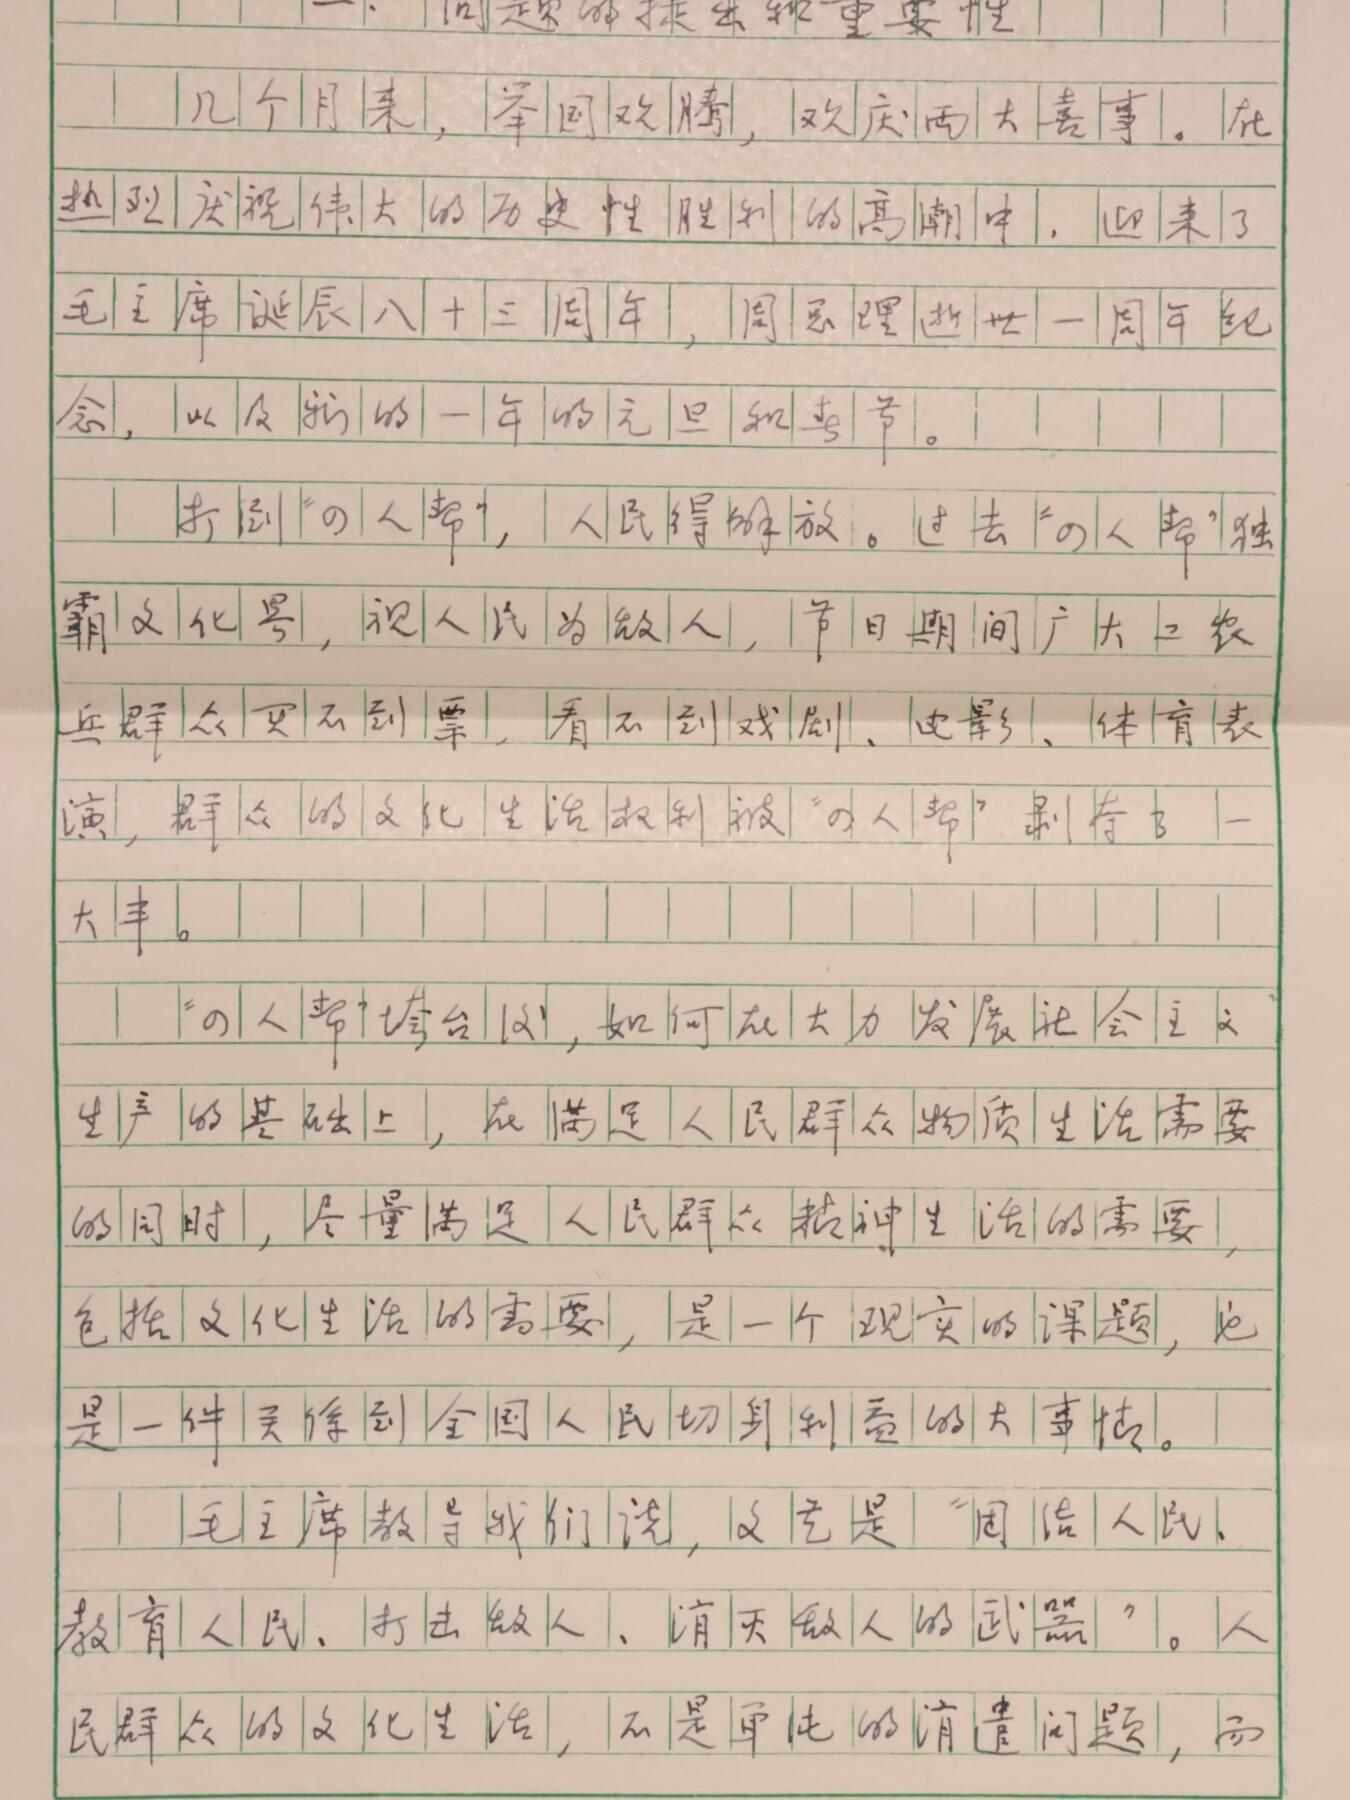 一、问题的提出和重要性
几个月来，举国欢腾，欢庆两大喜事。在
热烈庆祝伟大的历史性胜利的高潮中，迎来了
毛主席诞辰八十三周年，周总理逝世一周年纪
念，以及新的一年的元旦和春节。
打倒“四人帮”，人民得解放。过去“四人帮”独
霸文化界，视人民为敌人，节日期间广大工农
兵群众买不到票，看不到戏剧、电影、体育表
演，群众的文化生活权利被“四人帮”剥夺了一
大半。
“四人帮”垮台后，如何在大力发展社会主义
生产的基础上，在满足人民群众物质生活需要
的同时，尽量满足人民群众精神生活的需要，
包括文化生活的需要，是一个现实的课题，也
是一件关係到全国人民切身利益的大事情。
毛主席教导我们说，文艺是“团结人民、
教育人民、打击敌人、消灭敌人的武器”。人
民群众的文化生活，不是单纯的消遣问题，而